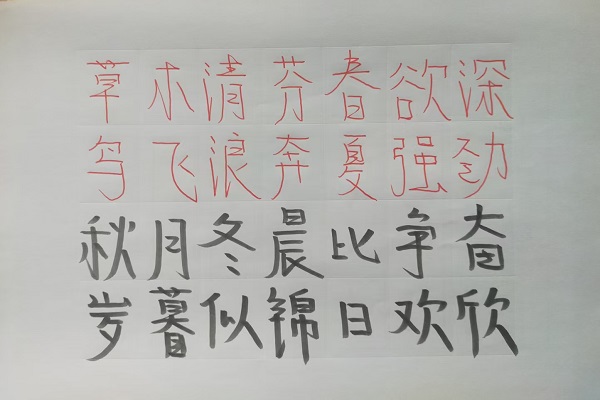 草木清芬春欲深
鸟飞浪奔夏强劲
秋月冬晨比争奋
岁暮似锦日欢欣